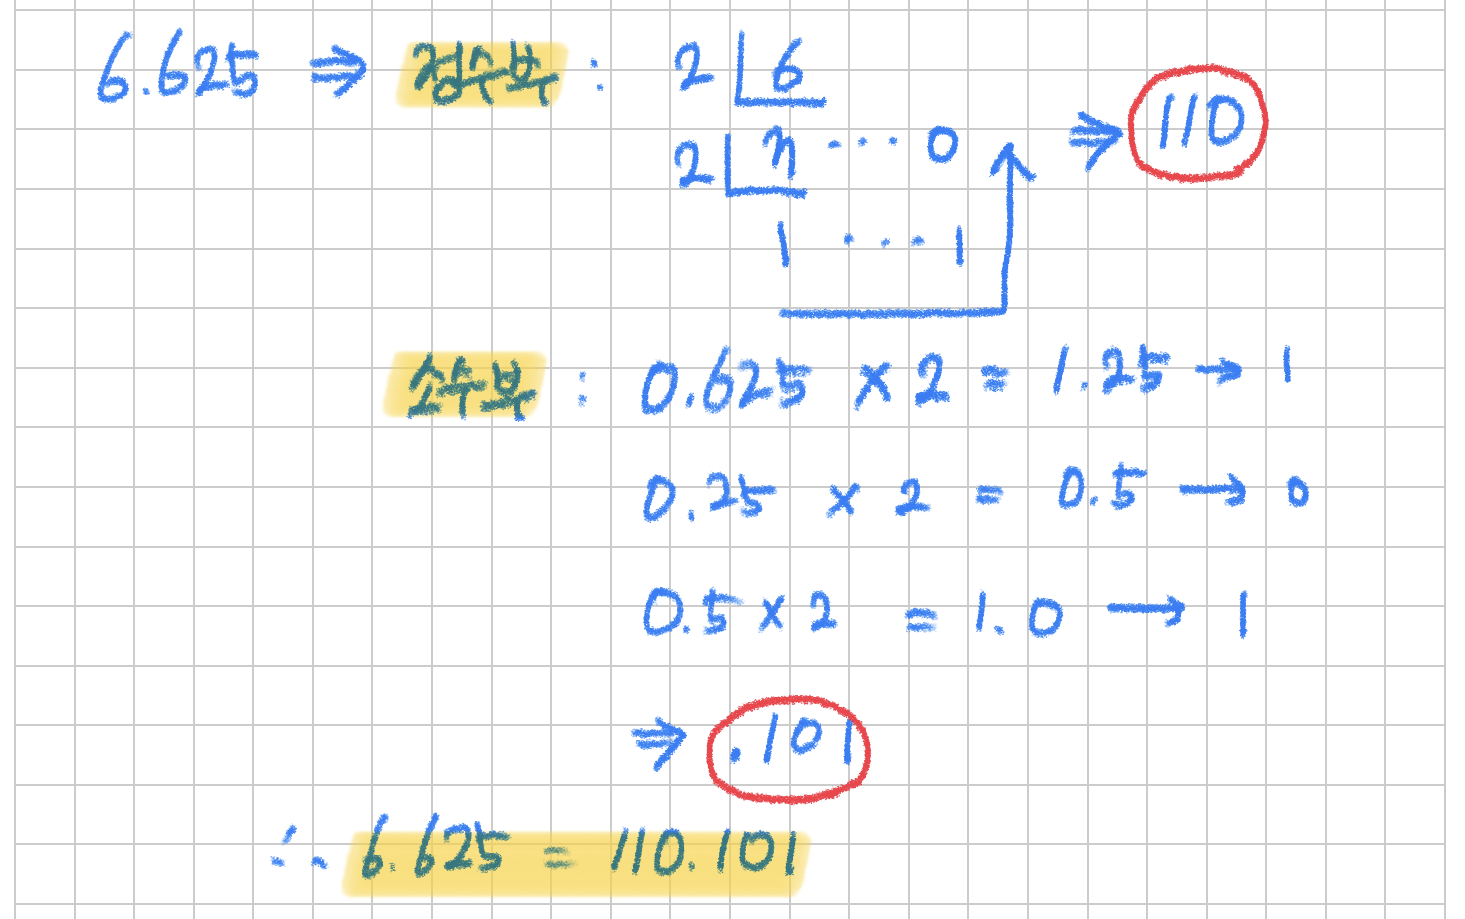 6.625 ⇒ 정수부 : 2 6
2 3 ··· 0 ⇒ 110
1 ··· 1
소수부 : 0.625 × 2 = 1.25 → 1
0.25 × 2 = 0.5 → 0
0.5 × 2 = 1.0 → 1
⇒ .101
∴ 6.625 = 110.101